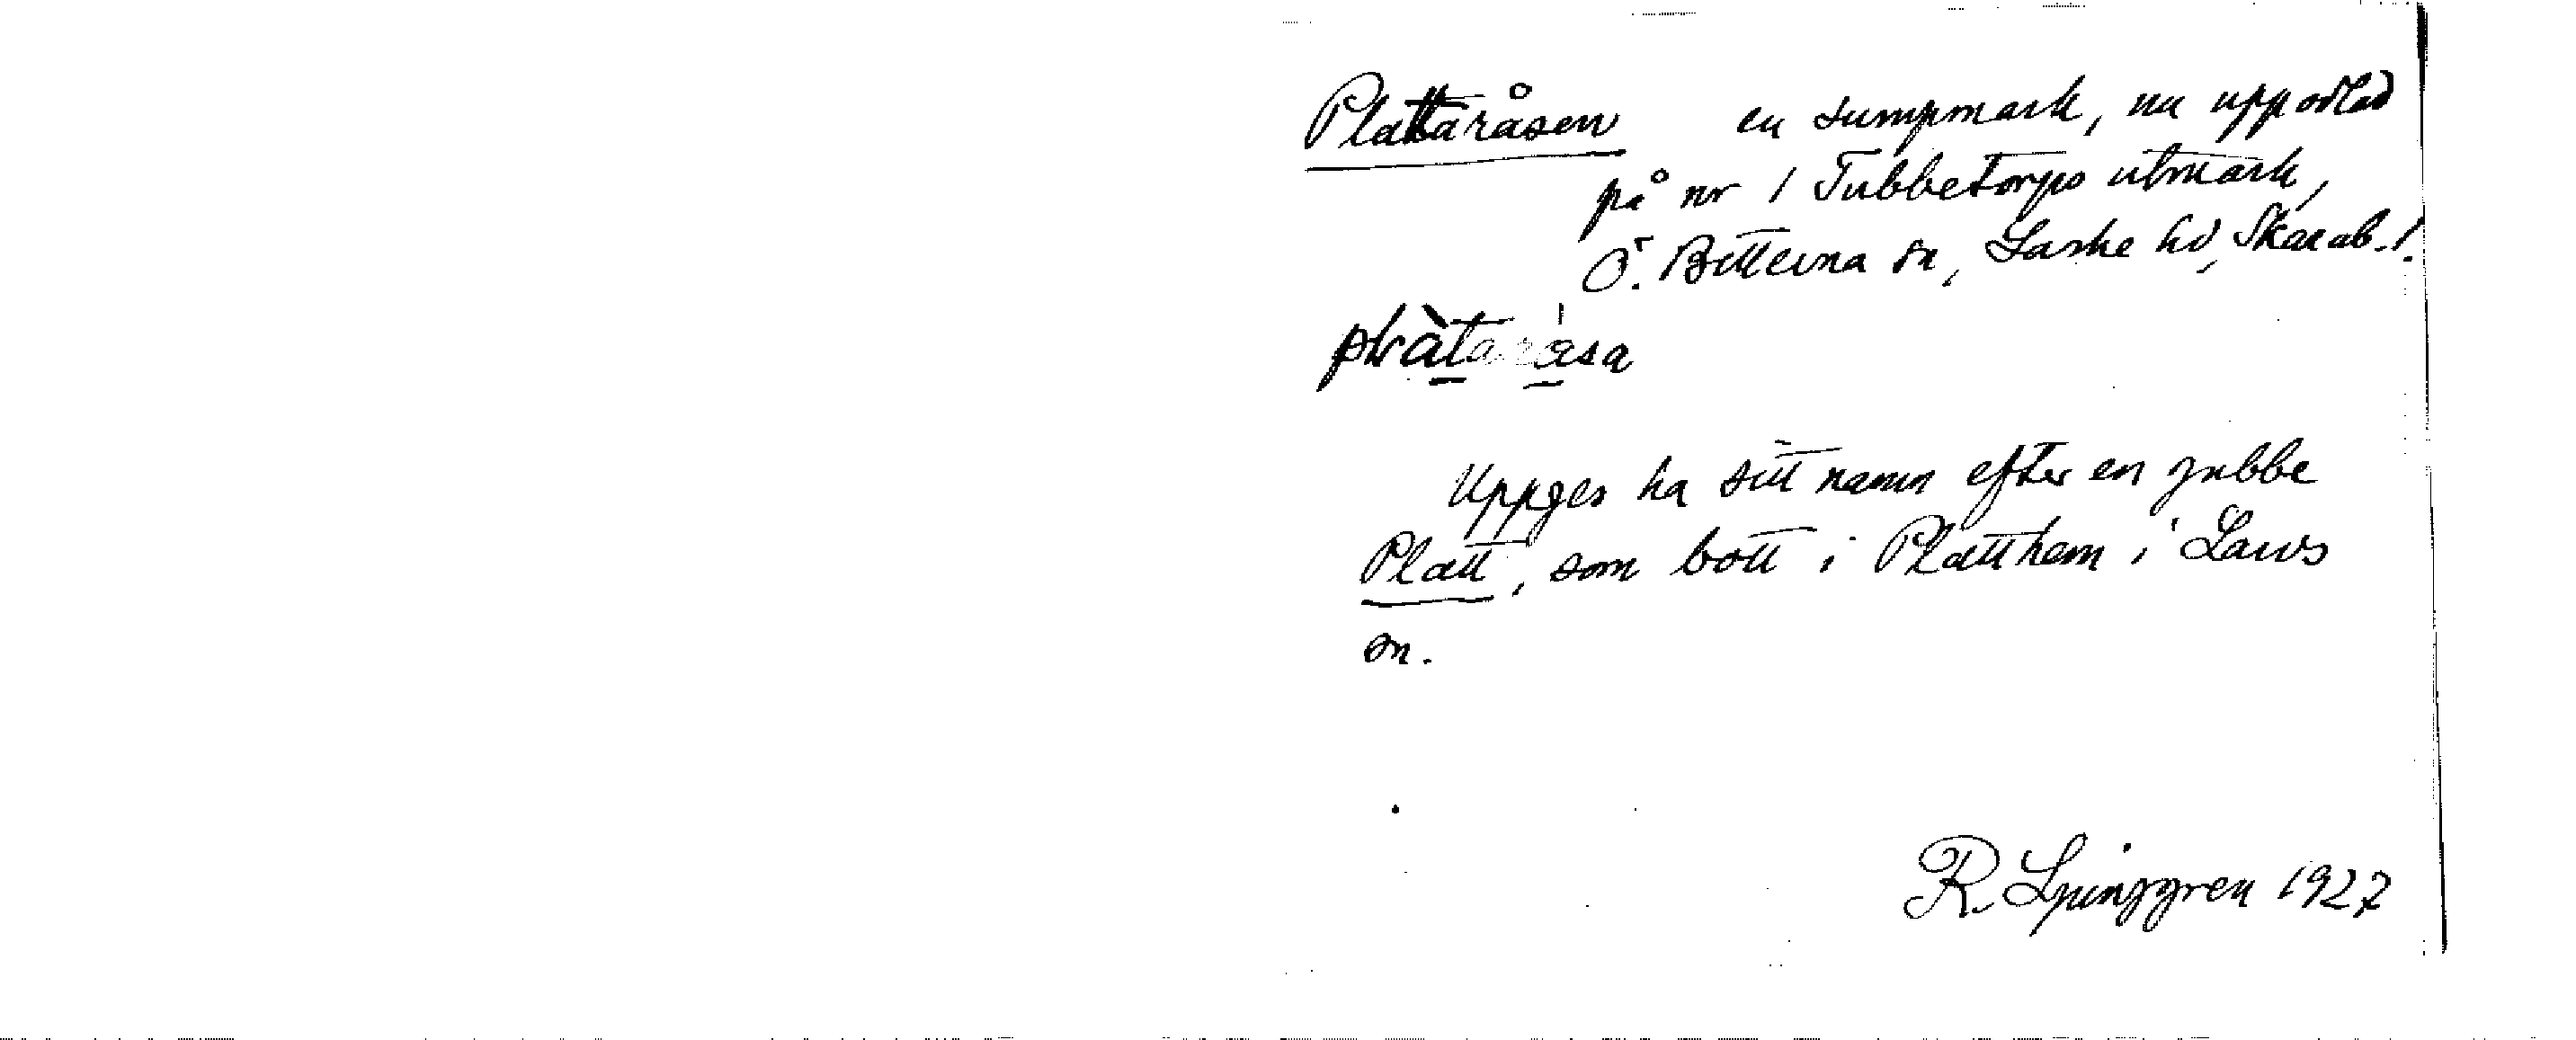 Plattaråsen en sumpmark, nu uppodlad
på nr 1 Tubbetorps utmark,
Ö. Bitterna sn, Laske hd, Skarab. l.
Uppges ha sitt namn efter en gubbe
Platt, som bott i Platthem i Larvs
sn.
R. Ljunggren 1927